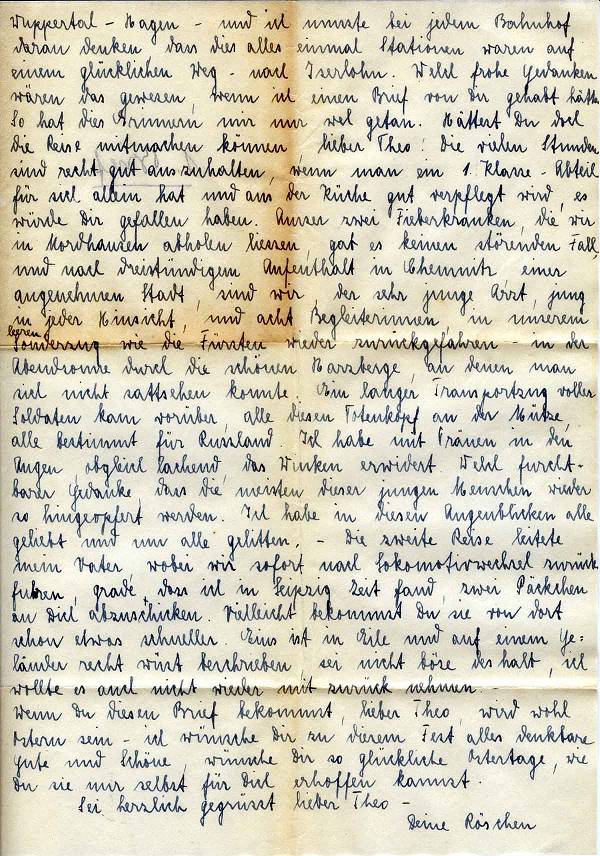 Wuppertal - Hagen - und ich musste bei jedem Bahnhof
daran denken, dass dies alles einmal Stationen waren auf
einem glücklichen Weg - nach Iserlohn. Welch frohe Gedanken
wären das gewesen, wenn ich einen Brief von Dir gehabt hätte.
So hat dies Erinnern mir nur weh getan. Hättest Du doch
die Reise mitmachen können, lieber Theo! die vielen Stunden
sind recht gut auszuhalten, wenn man ein 1. Klasse-Abteil
für sich allein hat und aus der Küche gut verpflegt wird, es
würde Dir gefallen haben. Ausser zwei Fieberkranken, die wir
in Nordhausen abholen liessen, gab es keinen störenden Fall,
und nach dreistündigem Aufenthalt in Chemnitz einer
angenehmen Stadt, sind wir, der sehr junge Arzt, jung
in jeder Hinsicht, und acht Begleiterinnen in unserem
leeren
Sonderzug wie die Fürsten wieder zurückgefahren - in der
Abendsonne durch die schönen Harzberge, an denen man
sich nicht sattsehen konnte. Ein langer Transportzug voller
Soldaten kam vorüber, alle diesen Totenkopf an der Mütze,
alle bestimmt für Russland. Ich habe mit Tränen in den
Augen, obgleich lachend, das Winken erwidert. Welch furcht-
barer Gedanke, dass die meisten dieser jungen Menschen wieder
so hingeopfert werden. Ich habe in diesen Augenblicken alle
geliebt und um alle gelitten. - Die zweite Reise leitete
mein Vater, wobei wir sofort nach Lokomotivwechsel zurück
fuhren, grade, dass ich in Leipzig Zeit fand, zwei Päckchen
an Dich abzuschicken. Vielleicht bekommst Du sie von dort
schon etwas schneller. Eins ist in Eile und auf einem Ge=
länder recht wüst beschrieben, sei nicht böse deshalb, ich
wollte es auch nicht wieder mit zurück nehmen. -
Wenn Du diesen Brief bekommst, lieber Theo, wird wohl
Ostern sein - ich wünsche Dir zu diesem Fest alles denkbare
Gute und Schöne, wünsche Dir so glückliche Ostertage, wie
Du sie nur selbst für Dich erhoffen kannst.
Sei herzlich gegrüsst lieber Theo -
Deine Röschen